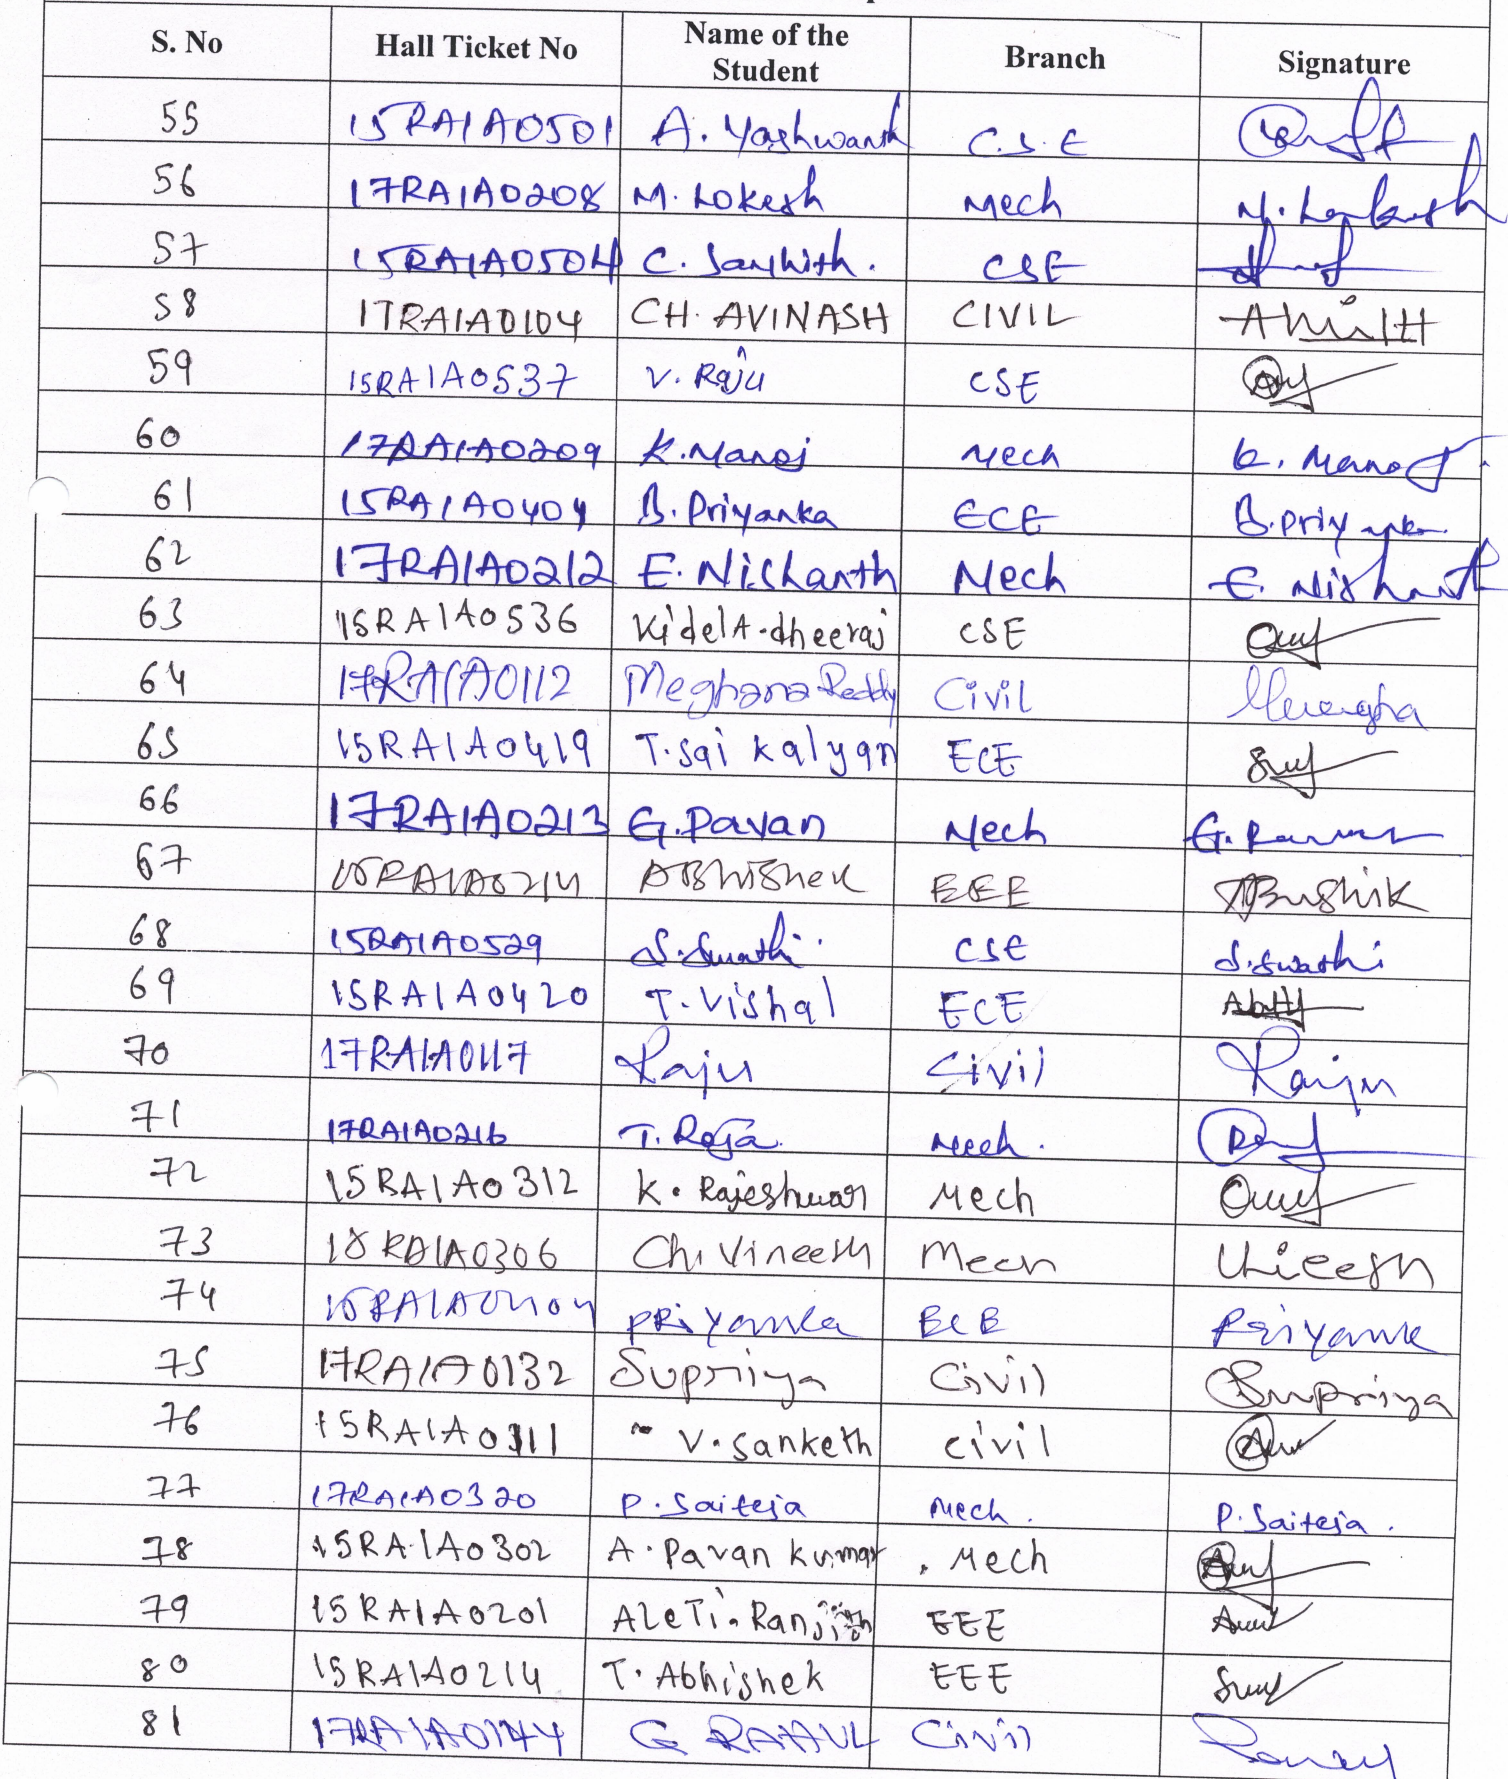 S. No Hall Ticket No Name of the Student Branch Signature
55 15RA1A0501 A. Yashwanth C.S.E
56 17RA1A0208 M. Lokesh Mech M. Lokesh
57 15RA1A0504 C. Sanhith. CSE
58 17RA1A0104 CH. AVINASH CIVIL
59 15RA1A0537 V. Raju CSE
60 17RA1A0209 K. Manoj Mech K. Manoj
61 15RA1A0404 B. Priyanka ECE B. Priyanka
62 17RA1A0212 E. Nishanth Mech E. Nishanth
63 15RA1A0536 KidelA.dheeraj CSE
64 17RA1A0112 Meghana Reddy Civil
65 15RA1A0419 T. Sai Kalyan ECE
66 17RA1A0213 G. Pavan Mech G. Pavan
67 15RA1A0214 ABhiShek EEE
68 15RA1A0529 S. Swathi. CSE S. Swathi
69 15RA1A0420 T. Vishal ECE
70 17RA1A0117 Raju Civil Raju
71 17RA1A0216 T. Raja. Mech.
72 15RA1A0312 K. Rajeshwar Mech
73 18RA1A0306 Ch. Vineesh Mech
74 15RA1A0404 PRiyanka ECE Priyanka
75 17RA1A0132 Supriya Civil Supriya
76 15RA1A0311 V. Sanketh civil
77 17RA1A0320 P. Saiteja Mech. P. Saiteja.
78 15RA1A0302 A. Pavan Kumar Mech
79 15RA1A0201 AleTi. Ranjith EEE
80 15RA1A0214 T. Abhishek EEE
81 17RA1A0144 G RAHUL Civil